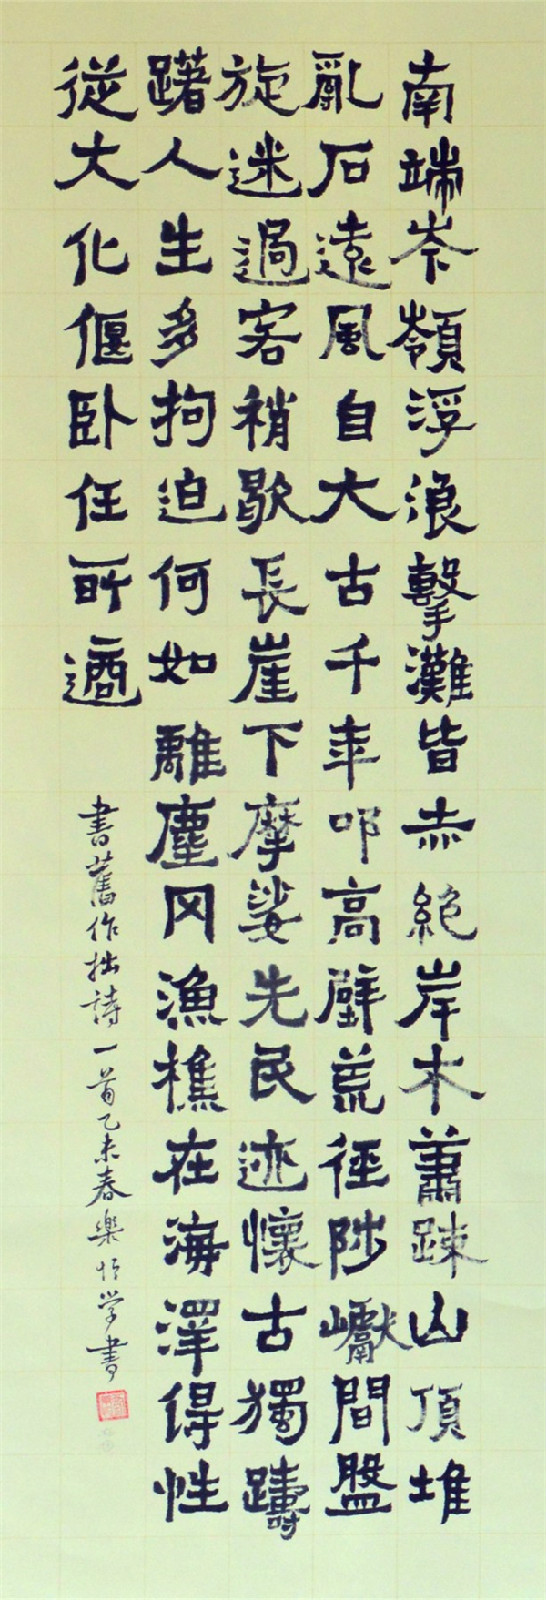 南端岑嶺浮浪擊灘皆赤絶岸木蕭踈山頂堆
亂石遠風自大古千年叩高壁荒徑陟巘間盤
旋迷過客稍歇長崖下摩娑先民迹懷古獨躊
躇人生多拘迫何如離塵网漁樵在海澤得性
從大化偃卧任所適
書舊作拙詩一首乙未春樂恒学書